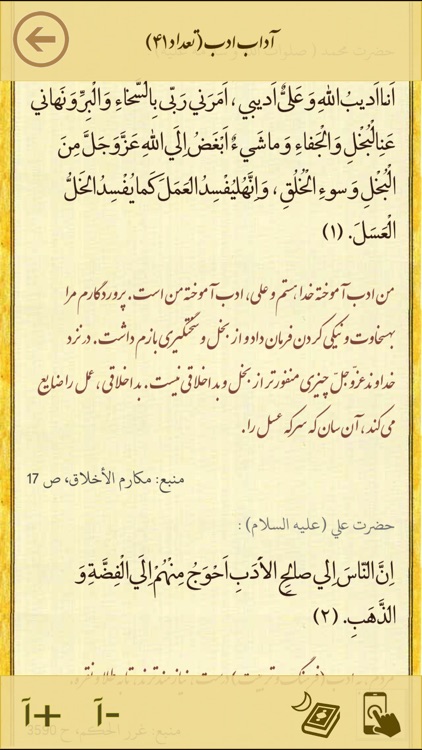 آداب ادب (تعداد ۴۱)
حضرت محمد ( صلوات
اَنَا اَدیبُ اللهِ وَ عَلِیٌّ اَدیبي ، اَمَرَني رَبّی بِالسَّخاءِ وَ الْبِرِّ وَ نَهاني
عَنِ الْبُخْلِ وَ الْجَفاءِ وَ ما شَيءٌ اَبْغَضُ اِلَي اللهِ عَزَّوَجَلَّ مِنَ
الْبُخْلِ وَ سوءِ الْخُلُقِ ، وَ اِنَّهُ لَيُفْسِدُ الْعَمَلَ كَما يُفْسِدُ الخَلُّ
الْعَسَلَ. (۱)
من ادب آموخته خدا هستم و علی، ادب آموخته من است. پروردگارم مرا
بهسخاوت و نیکی کردن فرمان داد و از بخل و سختگیری بازم داشت. در نزد
خداوند عزّوجلّ چیزی منفورتر از بخل و بد اخلاقی نیست. بد اخلاقی ، عمل را ضایع
می کند ، آن سان که سرکه عسل را.
منبع: مکارم الأخلاق، ص 17
حضرت علي (علیه السلام) :
اِنَّ النّاسَ اِلي صالِحِ الْاَدَبِ اَحْوَجُ مِنْهُمْ اِلَي الْفِضَّةِ وَ
الذَّهَبِ. (۲)
آ+ آ-
منبع: غرر الحکم، ح 3590